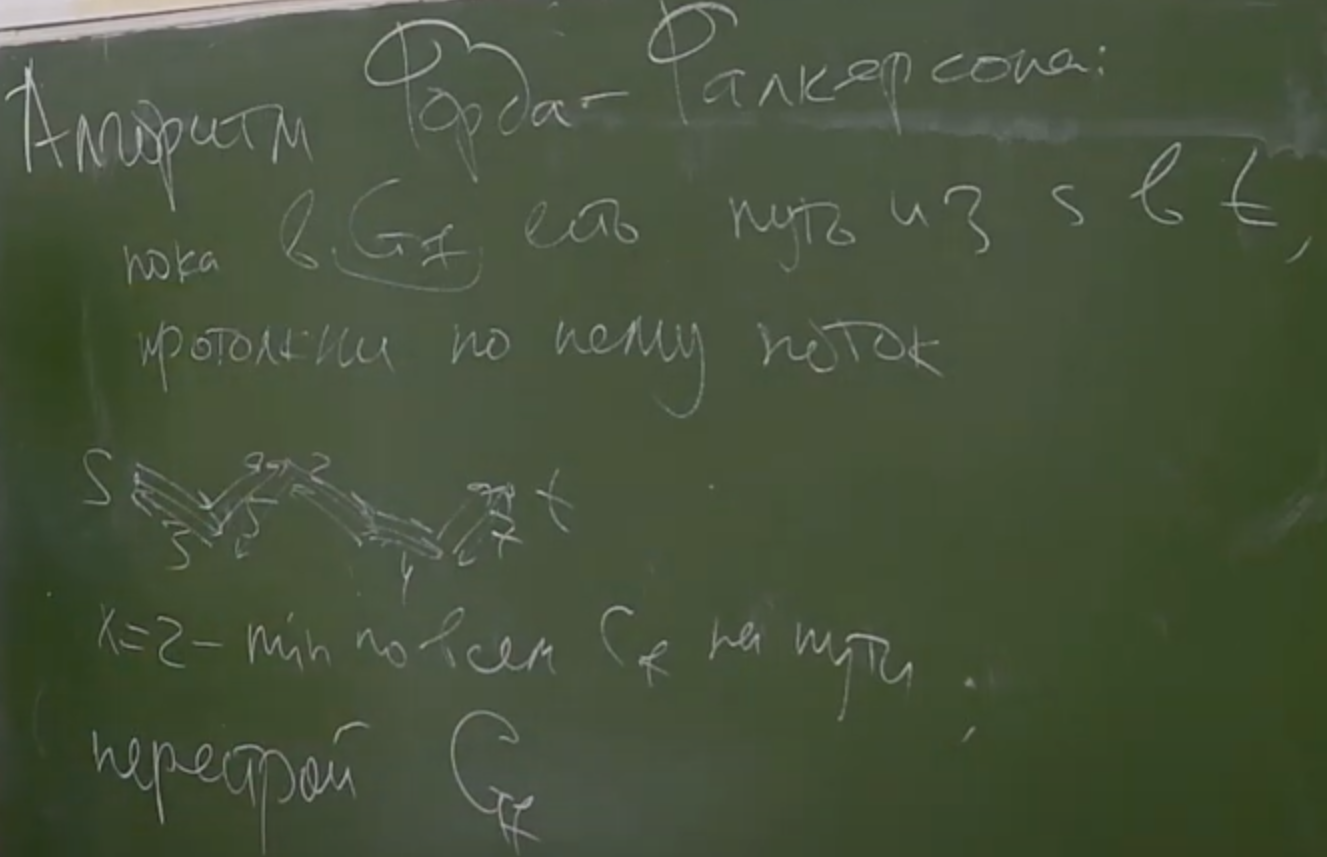 Алгоритм Форда-Фалкерсона:
пока в G_f есть путь из s в t,
протолкни по нему поток
S 3 5 2 4 7 t
x=2 - min по всем C_f на пути ;
перестрой G_f